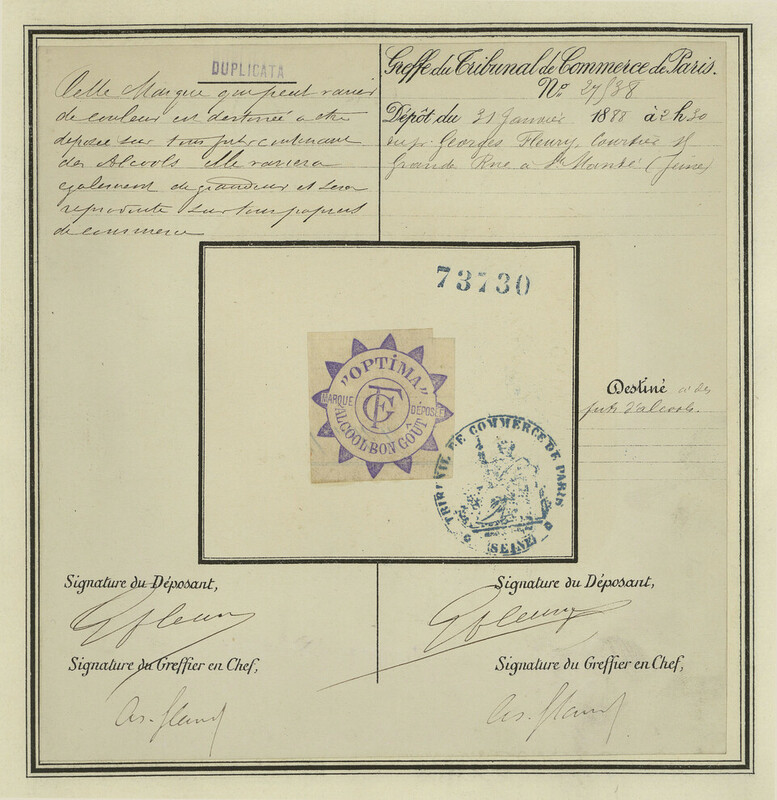 DUPLICATA
Cette Marque qui peut varier
de couleur est destinée a être
déposée sur tous futs contenant
des Alcools elle variera
egalement de grandeur et sera
reproduite sur tous papiers
de commerce
Greffe du Tribunal de Commerce de Paris.
No 27/38
Dépôt du 31 Janvier 1888 à 2 h 30
Georges Fleury, Courtier
Grande Rue à St Mandé (Seine)
73730
"OPTIMA"
MARQUE DÉPOSÉE
GF
ALCOOL BON GOÛT
TRIBUNAL DE COMMERCE DE PARIS
(SEINE)
Destiné à des
futs d'alcools.
Signature du Déposant,
G Fleury
Signature du Greffier en Chef,
Signature du Déposant,
G Fleury
Signature du Greffier en Chef,